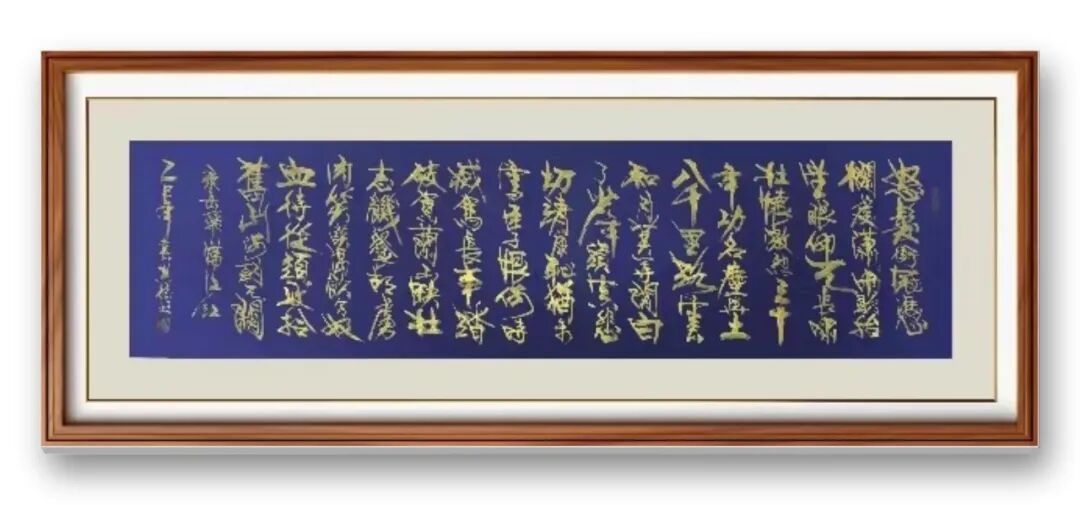 怒髮衝冠憑
欄處瀟瀟雨歇抬
望眼仰天長嘯
壯懷激烈三十
年功名塵與土
八千里路雲
和月莫等閒白
了少年頭空悲
切靖康恥猶未
雪臣子恨何時
滅駕長車踏
破賀蘭山缺壯
志饑餐胡虜
肉笑談渴飲匈奴
血待從頭收拾
舊山河朝天闕
岳飛滿江紅
乙巳年